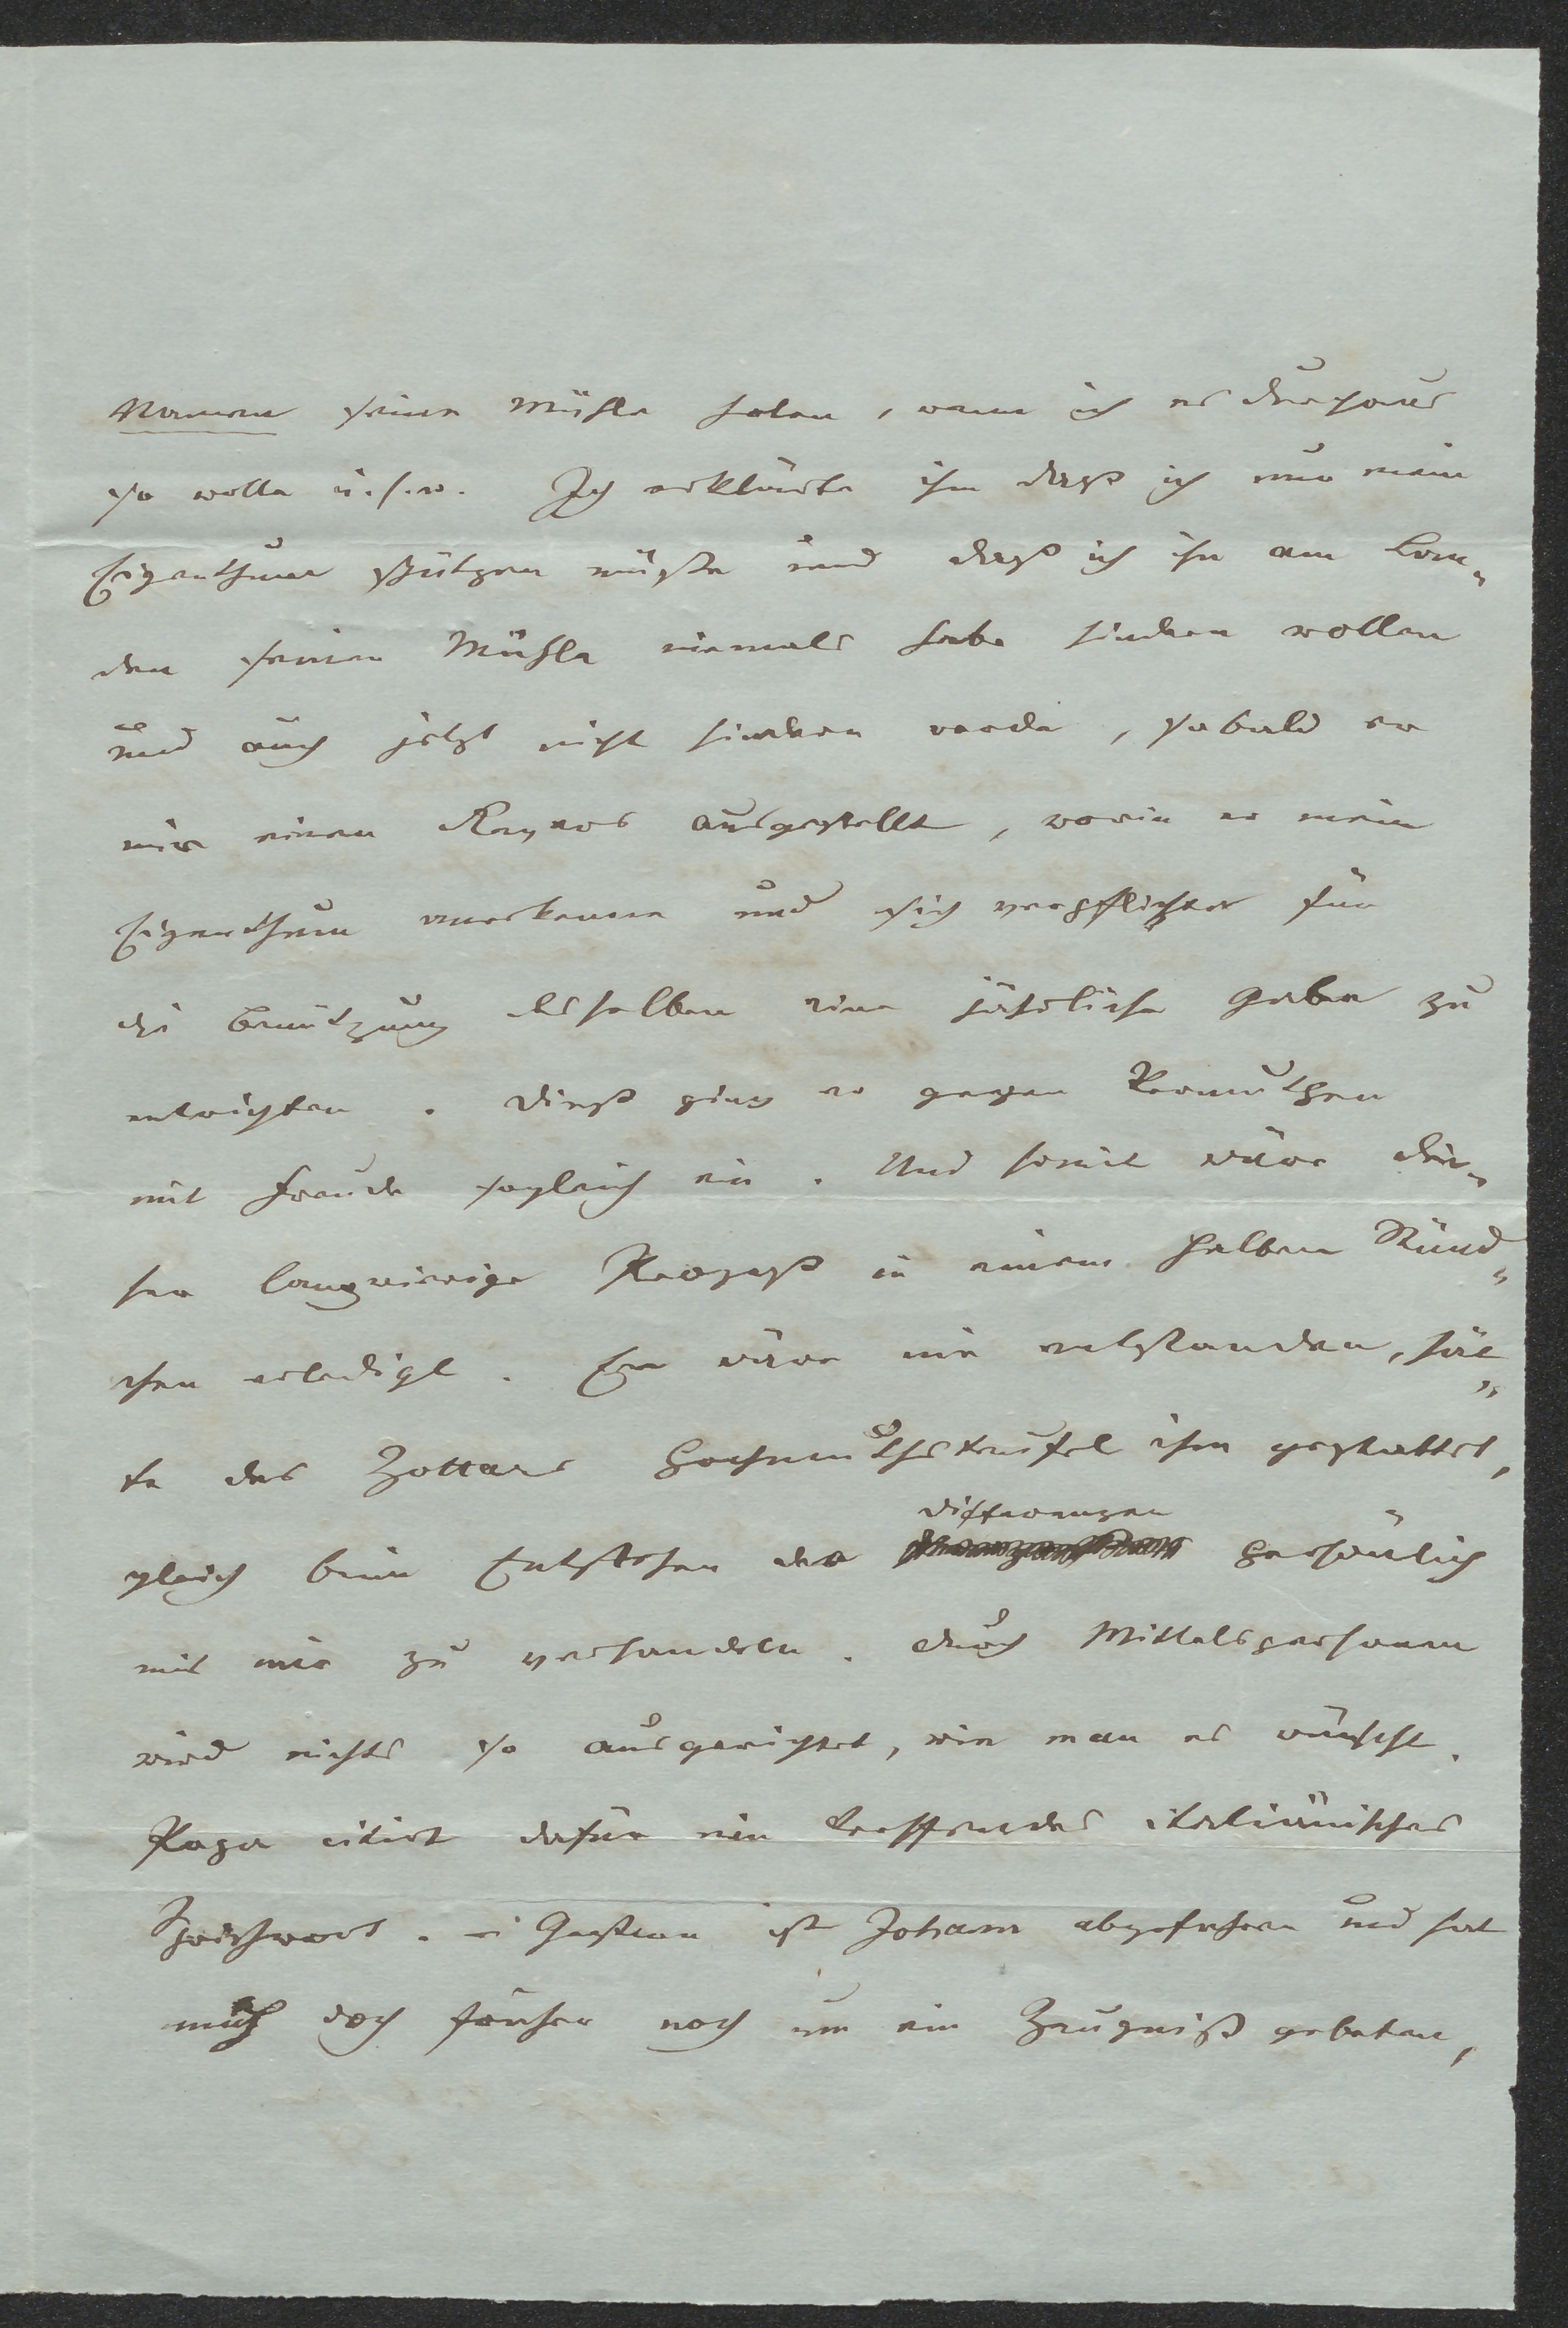 Namen seine Mühle holen, wenn ich es durchaus
so wolle u.s.w. Ich erklärte ihm daß ich nur mein
Eigenthum schützen müßte und daß ich ihn am Lan-
den seiner Mühle niemals habe hindern wollen
und auch jetzt nicht hindern werde, sobald er
mir einen Revers ausgestellt, worin er mein
Eigenthum anerkenne und sich verpflichtet für
die Benützung desselben eine jährliche Gabe zu
entrichten. Dieß ging er gegen Vermuthen
mit Freude sogleich ein. Und somit wäre die-
ser langwierige Prozeß in einem halben Stünd-
chen erledigt. Er wäre nie entstanden, hät-
te des Zotters Hochmuthsteufel ihm gestattet,
Differenzen
gleich beim Entstehen der persönlich
mit mir zu verhandeln. Durch Mittelspersonen
wird nichts so ausgerichtet, wie man es wünscht.
Papa citirt dafür ein treffendes italiänisches
Sprichwort. – Gestern ist Johann abgefahren und hat
mich doch früher noch um ein Zeugniß gebeten,